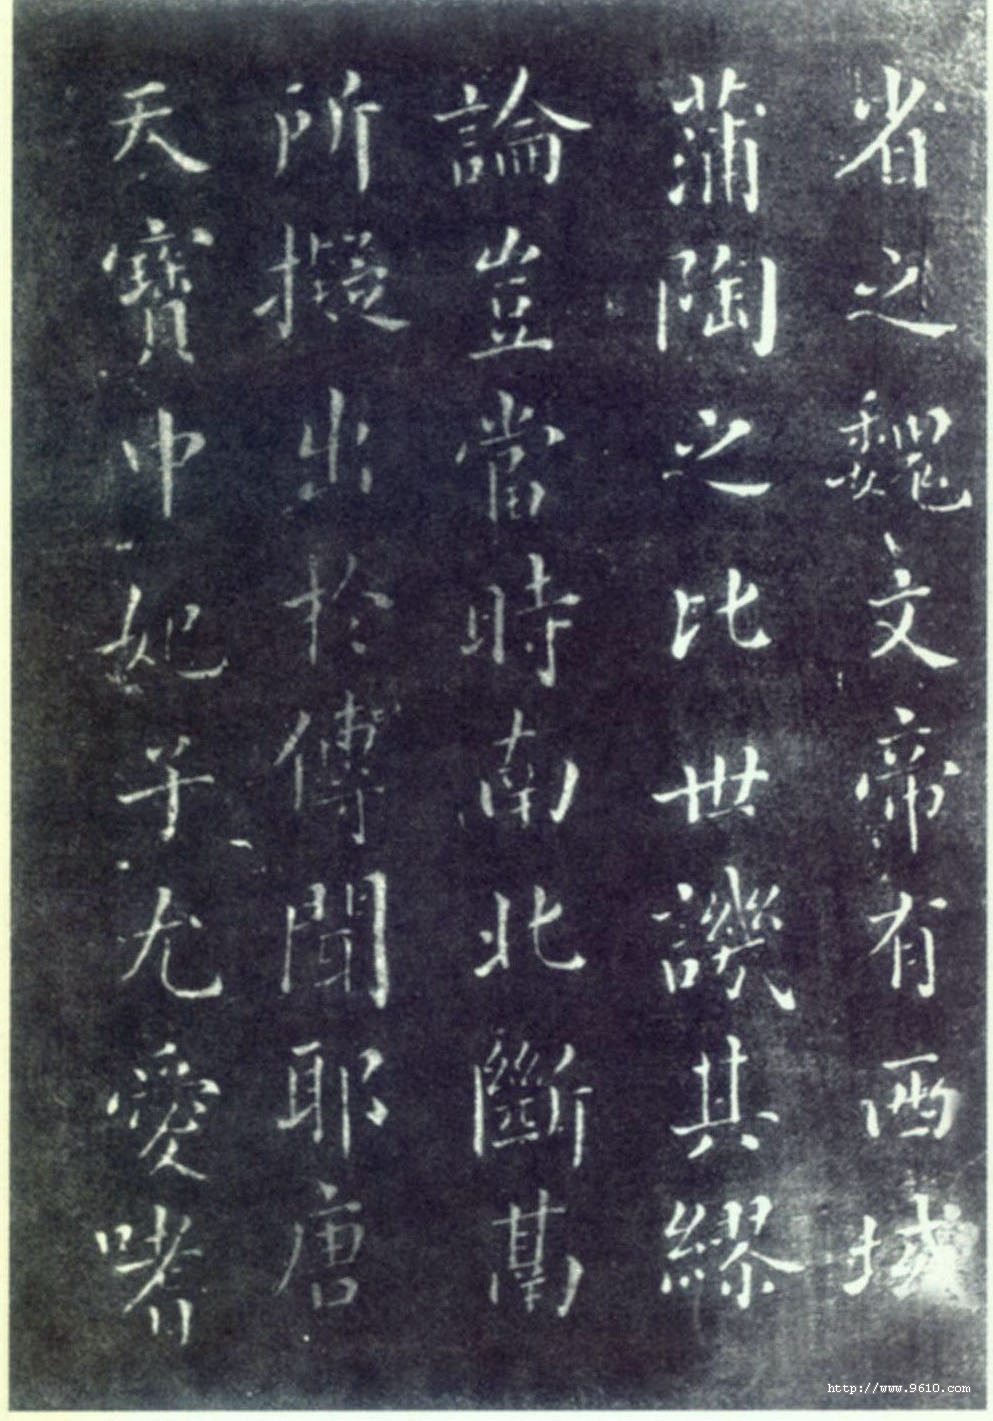 省之魏文帝有西域
蒲陶之比世譏其繆
論豈當時南北斷鬲
所擬出於傳聞耶唐
天寶中妃子尤愛嗜
http://www.9610.com